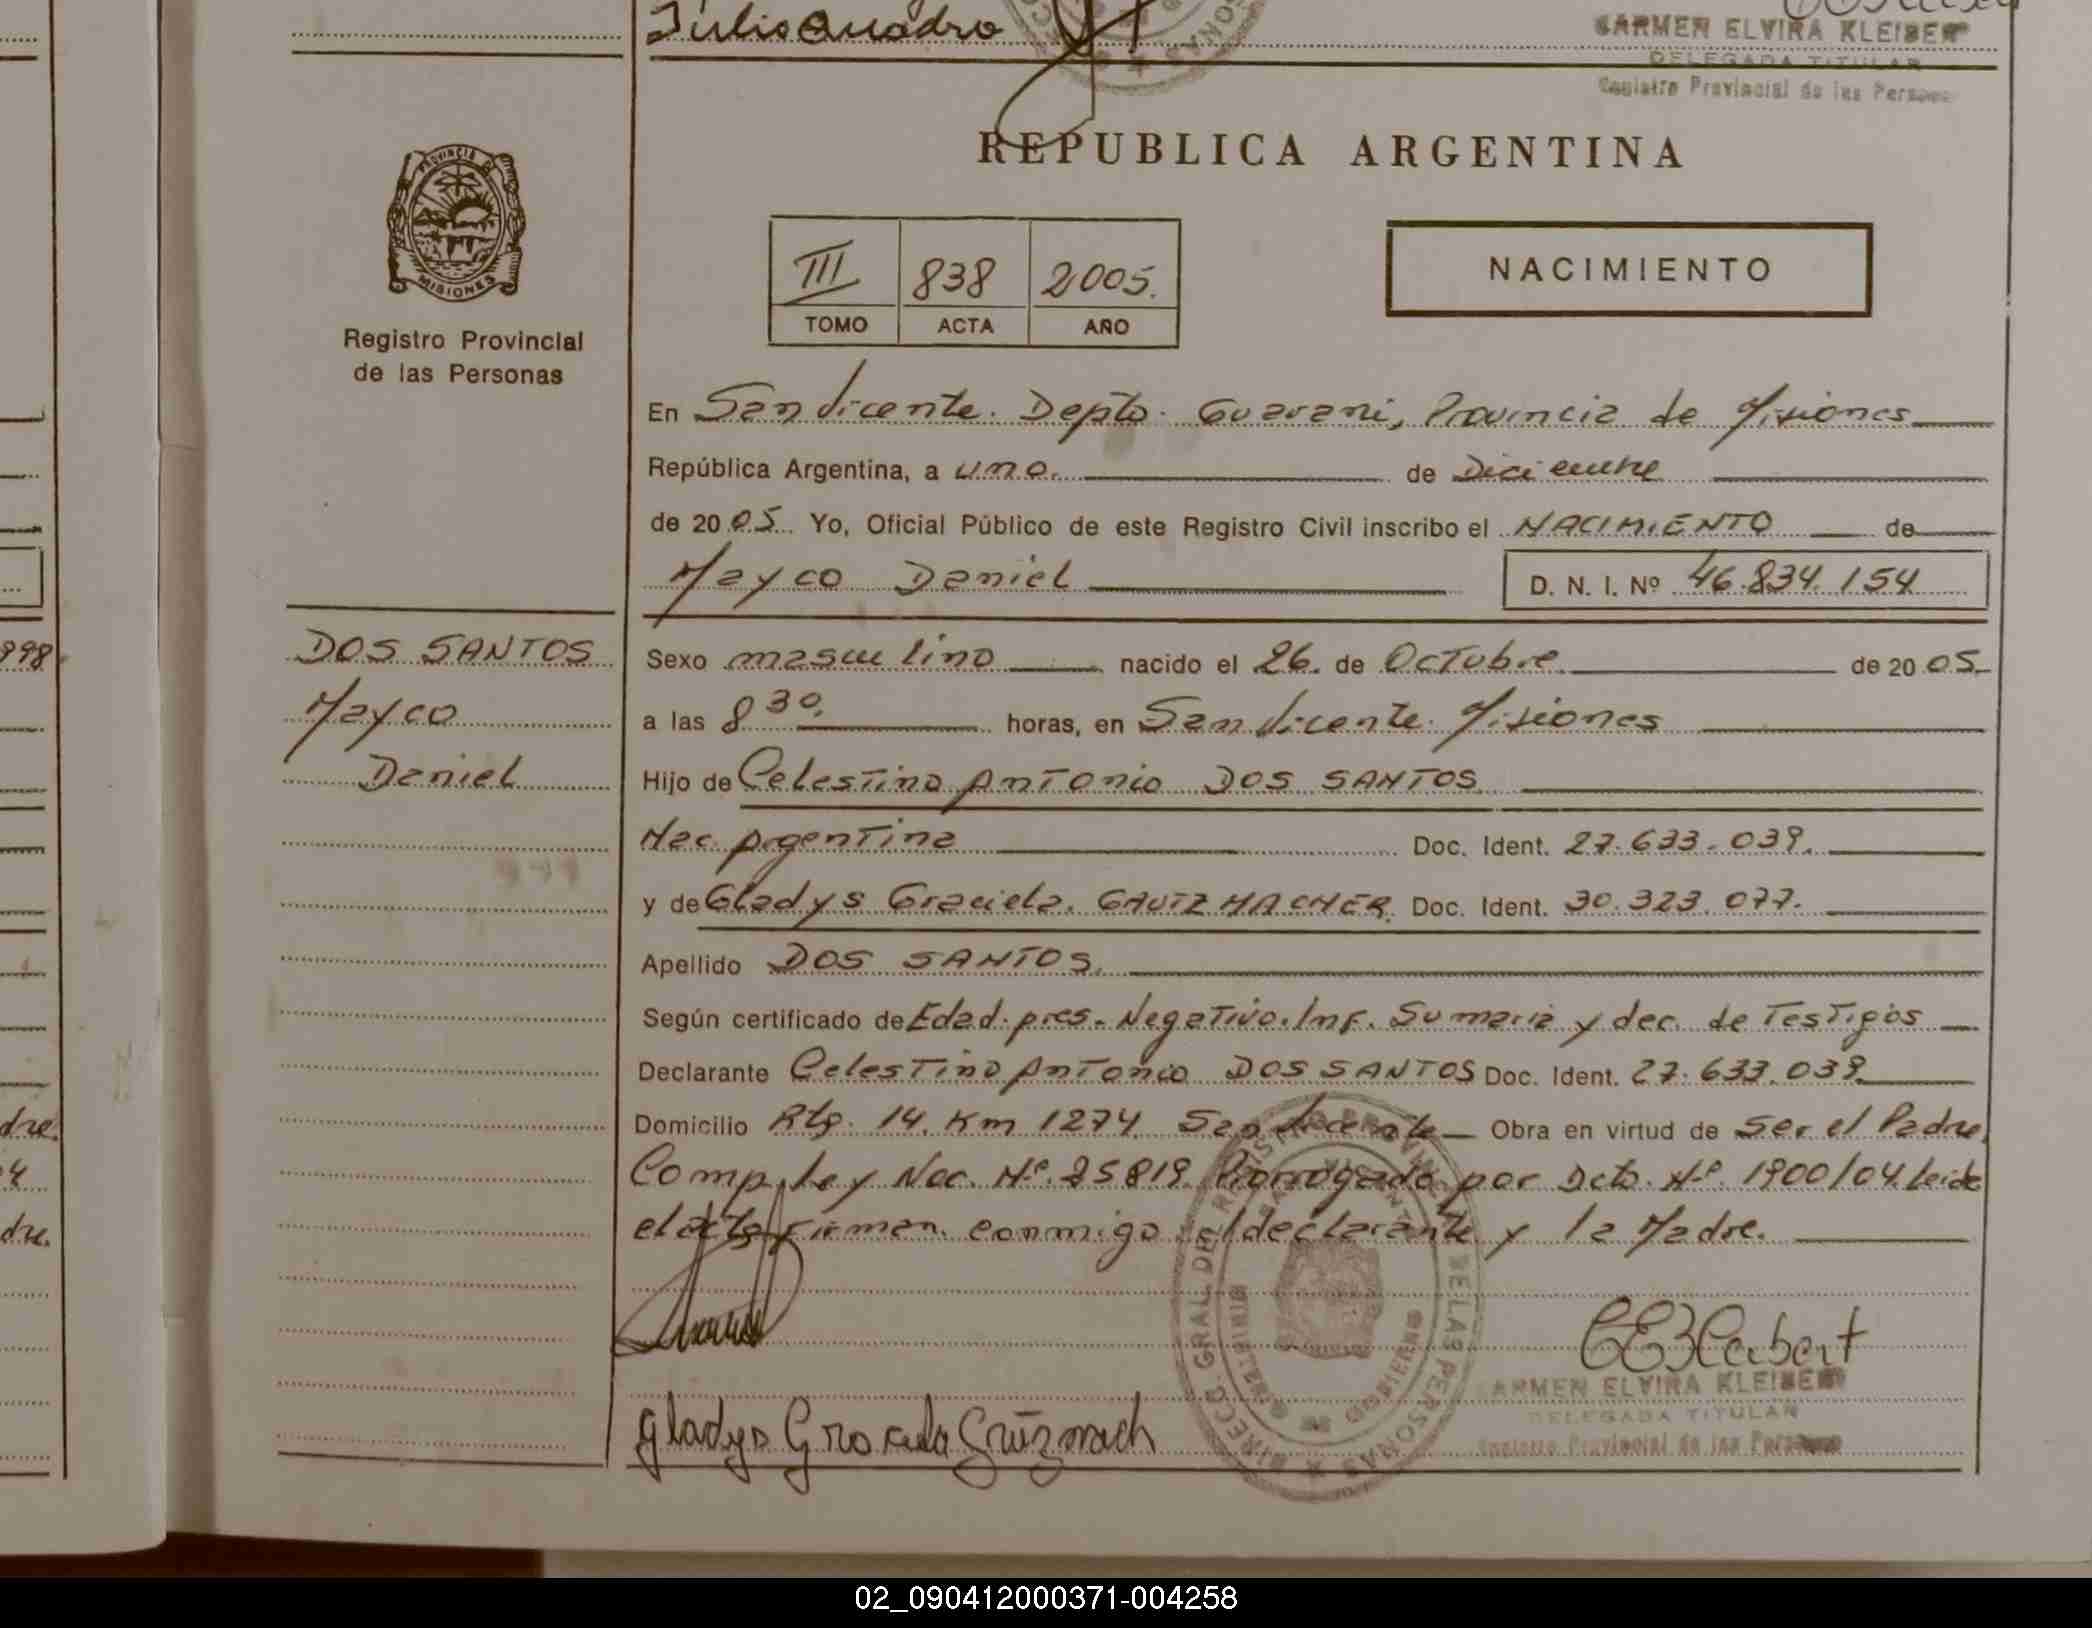 Julio Cuadro
CARMEN ELVIRA KLEIBER
DELEGADA TITULAR
Registro Provincial de las Personas
PROVINCIA DE
MISIONES
Registro Provincial
de las Personas
REPUBLICA ARGENTINA
III 838 2005.
TOMO ACTA AÑO
NACIMIENTO
En San Vicente. Depto. Guarani, Provincia de Misiones
República Argentina, a uno. de Diciembre
de 20 05 Yo, Oficial Público de este Registro Civil inscribo el NACIMIENTO de
Mayco Daniel D. N. I. Nº 46.834.154
DOS SANTOS
Mayco
Daniel
Sexo masculino nacido el 26. de Octubre. de 20 05.
a las 8 30. horas, en San Vicente. Misiones
Hijo de Celestino Antonio DOS SANTOS.
Nac. Argentina Doc. Ident. 27.633.039.
y de Gladys Graciela. GAUTZMACHER. Doc. Ident. 30.323.077.
Apellido DOS SANTOS.
Según certificado de Edad. pres. Negativo. Inf. Sumaria y dec. de Testigos
Declarante Celestino Antonio DOS SANTOS Doc. Ident. 27.633.039.
Domicilio Rta. 14. Km 1274. San Vicente Obra en virtud de Ser el Padre.
Comp. Ley Nac. Nº 25819. Prorrogado por Dcto. Nº. 1900/04. Leida
el acta firman. conmigo. el declarante y la Madre.
DIRECC. GRAL. DEL REGISTRO PROVINCIAL DE LAS PERSONAS
SAN VICENTE
MINISTERIO DE GOBIERNO
CARMEN ELVIRA KLEIBER
DELEGADA TITULAR
Registro Provincial de las Personas
998.
dre.
4
dre.
02_090412000371-004258